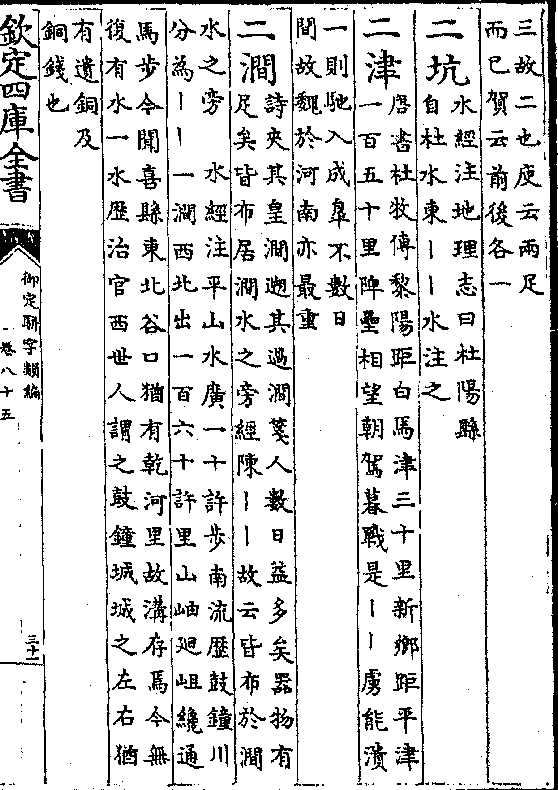 三故二也庾云兩足
而已賀云前後各一
二坑
水經注地理志曰杜陽縣
自杜水東丨丨水注之
二津
唐書杜牧傳黎陽距白馬津三十里新鄉距平津
一百五十里陴壘相望朝駕暮戰是丨丨虜能潰
一則馳入成臯不數日
間故魏於河南亦最重
二澗
詩夾其皇澗遡其過澗箋人數日益多矣器物有
足矣皆布居澗水之旁經陳丨丨故云皆布於澗
水之旁
水經注平山水廣一十許步南流歷鼓鐘川
分為丨丨一澗西北出一百六十許里山岫廻岨纔通
馬步今聞喜縣東北谷口猶有乾河里故溝存焉今無
復有水一水歷冶官西世人謂之鼓鐘城城之左右猶
有遺銅及
銅錢也
欽定四庫全書
御定駢字類編
卷八十五
三十一